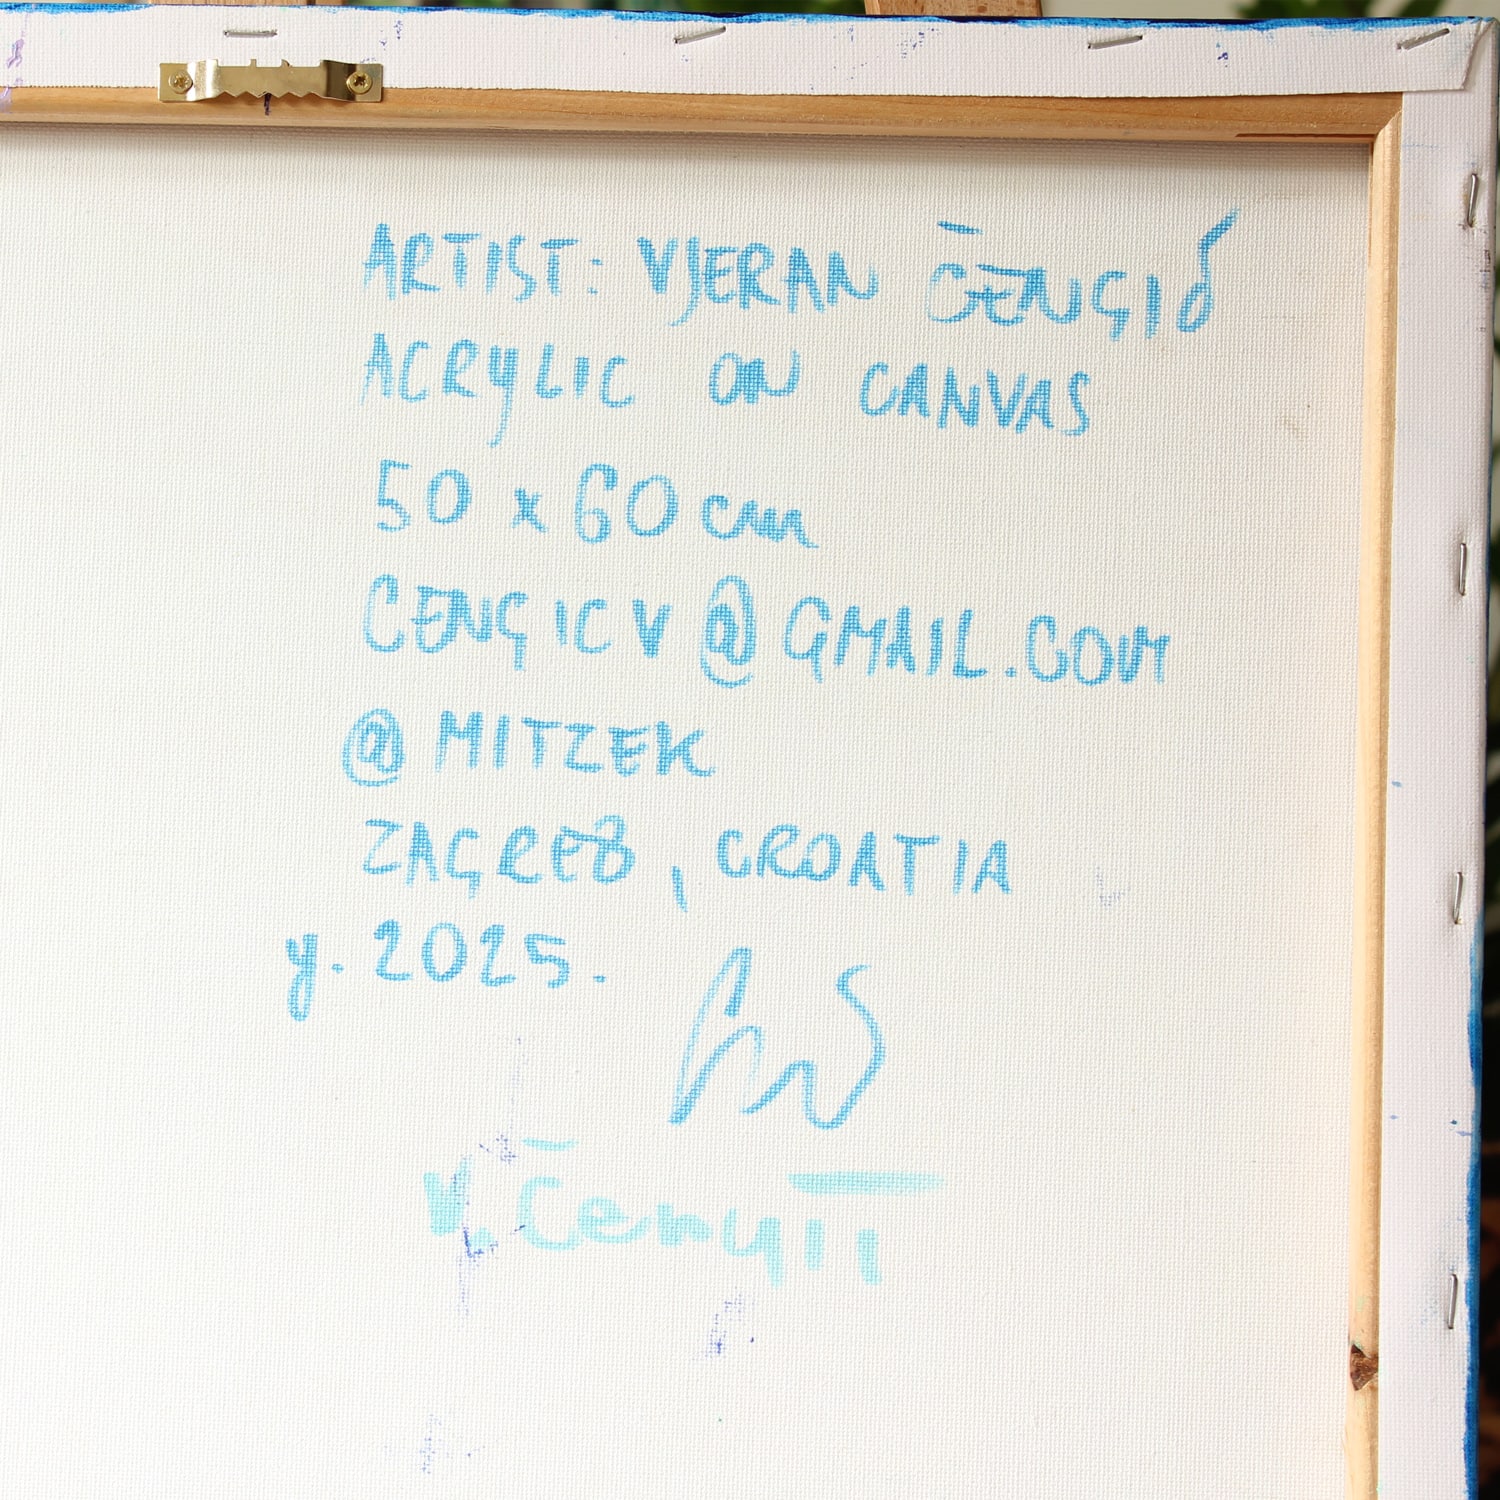 ARTIST: VJERAN ČENGIĆ
ACRYLIC ON CANVAS
50 x 60 cm
CENGICV@GMAIL.COM
@MITZEK
ZAGREB, CROATIA
y. 2025.
V. Čengić